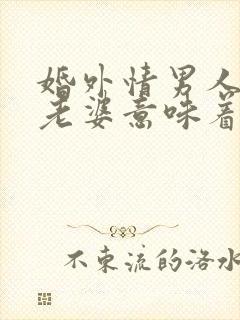 婚外情男人
老婆意味着
不东流的洛水